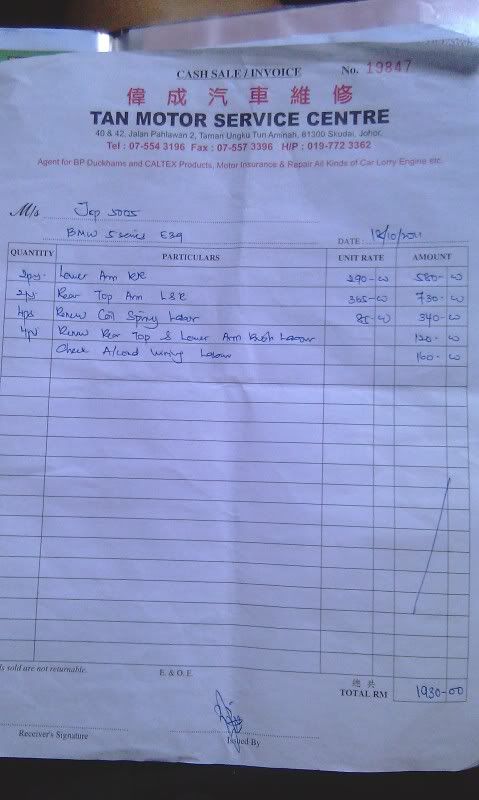 CASH SALE / INVOICE No. 19847
偉成汽車維修
TAN MOTOR SERVICE CENTRE
40 & 42, Jalan Pahlawan 2, Taman Ungku Tun Aminah, 81300 Skudai, Johor.
Tel : 07-554 3196 Fax : 07-557 3396 H/P : 019-772 3362
Agent for BP Duckhams and CALTEX Products, Motor Insurance & Repair All Kinds of Car Lorry Engine etc.
M/s Jep 5005
BMW 5 series E39 DATE : 12/10/2011
QUANTITY PARTICULARS UNIT RATE AMOUNT
2pcs Lower Arm 290-00 580-00
2pcs Rear Top Arm L&R 365-00 730-00
4pcs Renew Coil Spring Labour 85-00 340-00
4pcs Renew Rear Top & Lower Arm Bush Labour 120-00
Check A/Cond Wiring Labour 160-00
ds sold are not returnable.
E. & O. E.
總共
TOTAL RM 1930-00
Receiver's Signature
Issued By